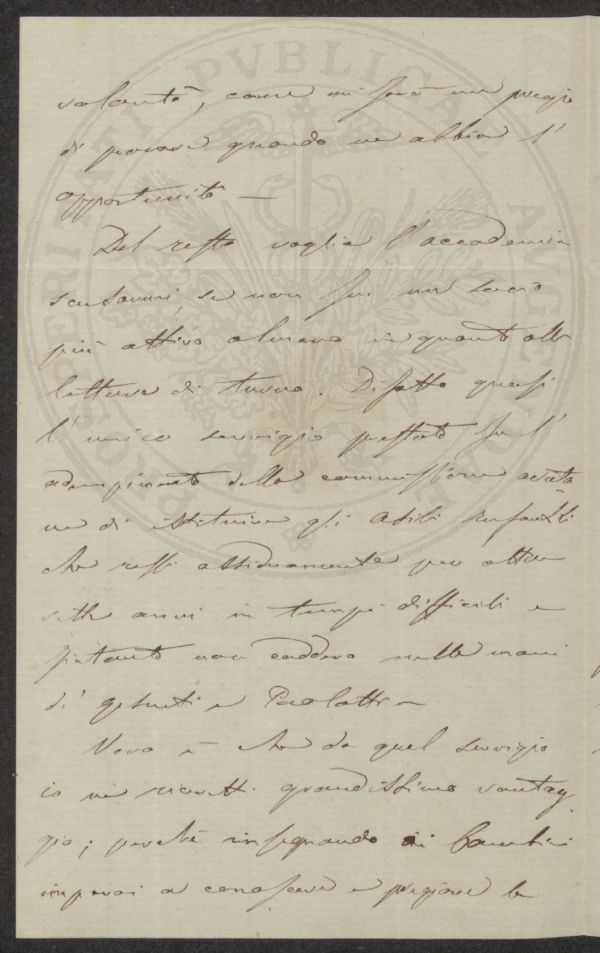 volontà, come mi farò un pregio
di provare quando ne abbia l'
opportunità —
Del resto voglia l'accademia
scusarmi se non fui un socio
più attivo almeno in quanto alle
letture di turno. Difatto quasi
l'unico servigio prestato fu l'
adempimento della commissione avuta
ne di istituire gli Asili infantili
che ressi assiduamente per oltre
sette anni in tempi difficili e
fintanto non caddero nelle mani
di gesuiti e Paolotti —
Vero è che da quel servigio
io ne ricavai grandissimo vantag
gio; perchè insegnando ai bambini
imparai a conoscere e pregiare le
PROSPERITATI PVBLICAE AVGENDAE